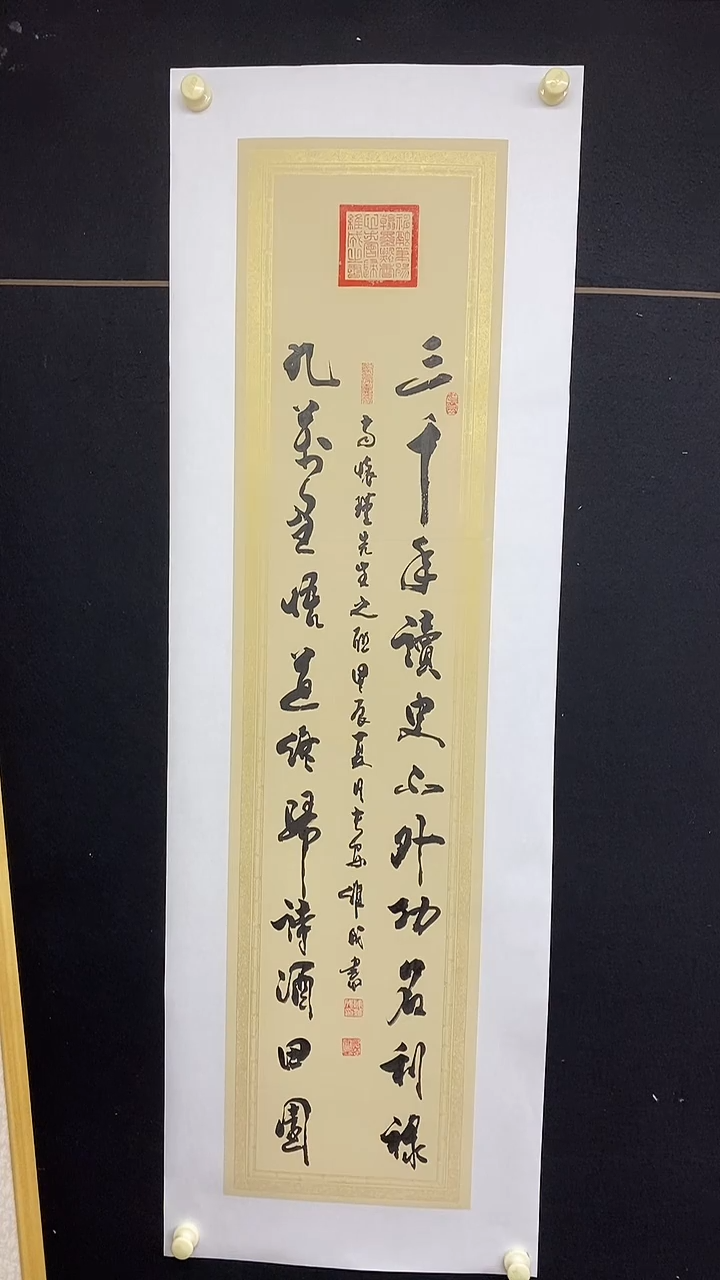 三千年讀史不外功名利祿
九萬里悟道終歸詩酒田園
南懷瑾先生之联甲辰夏月 維成書